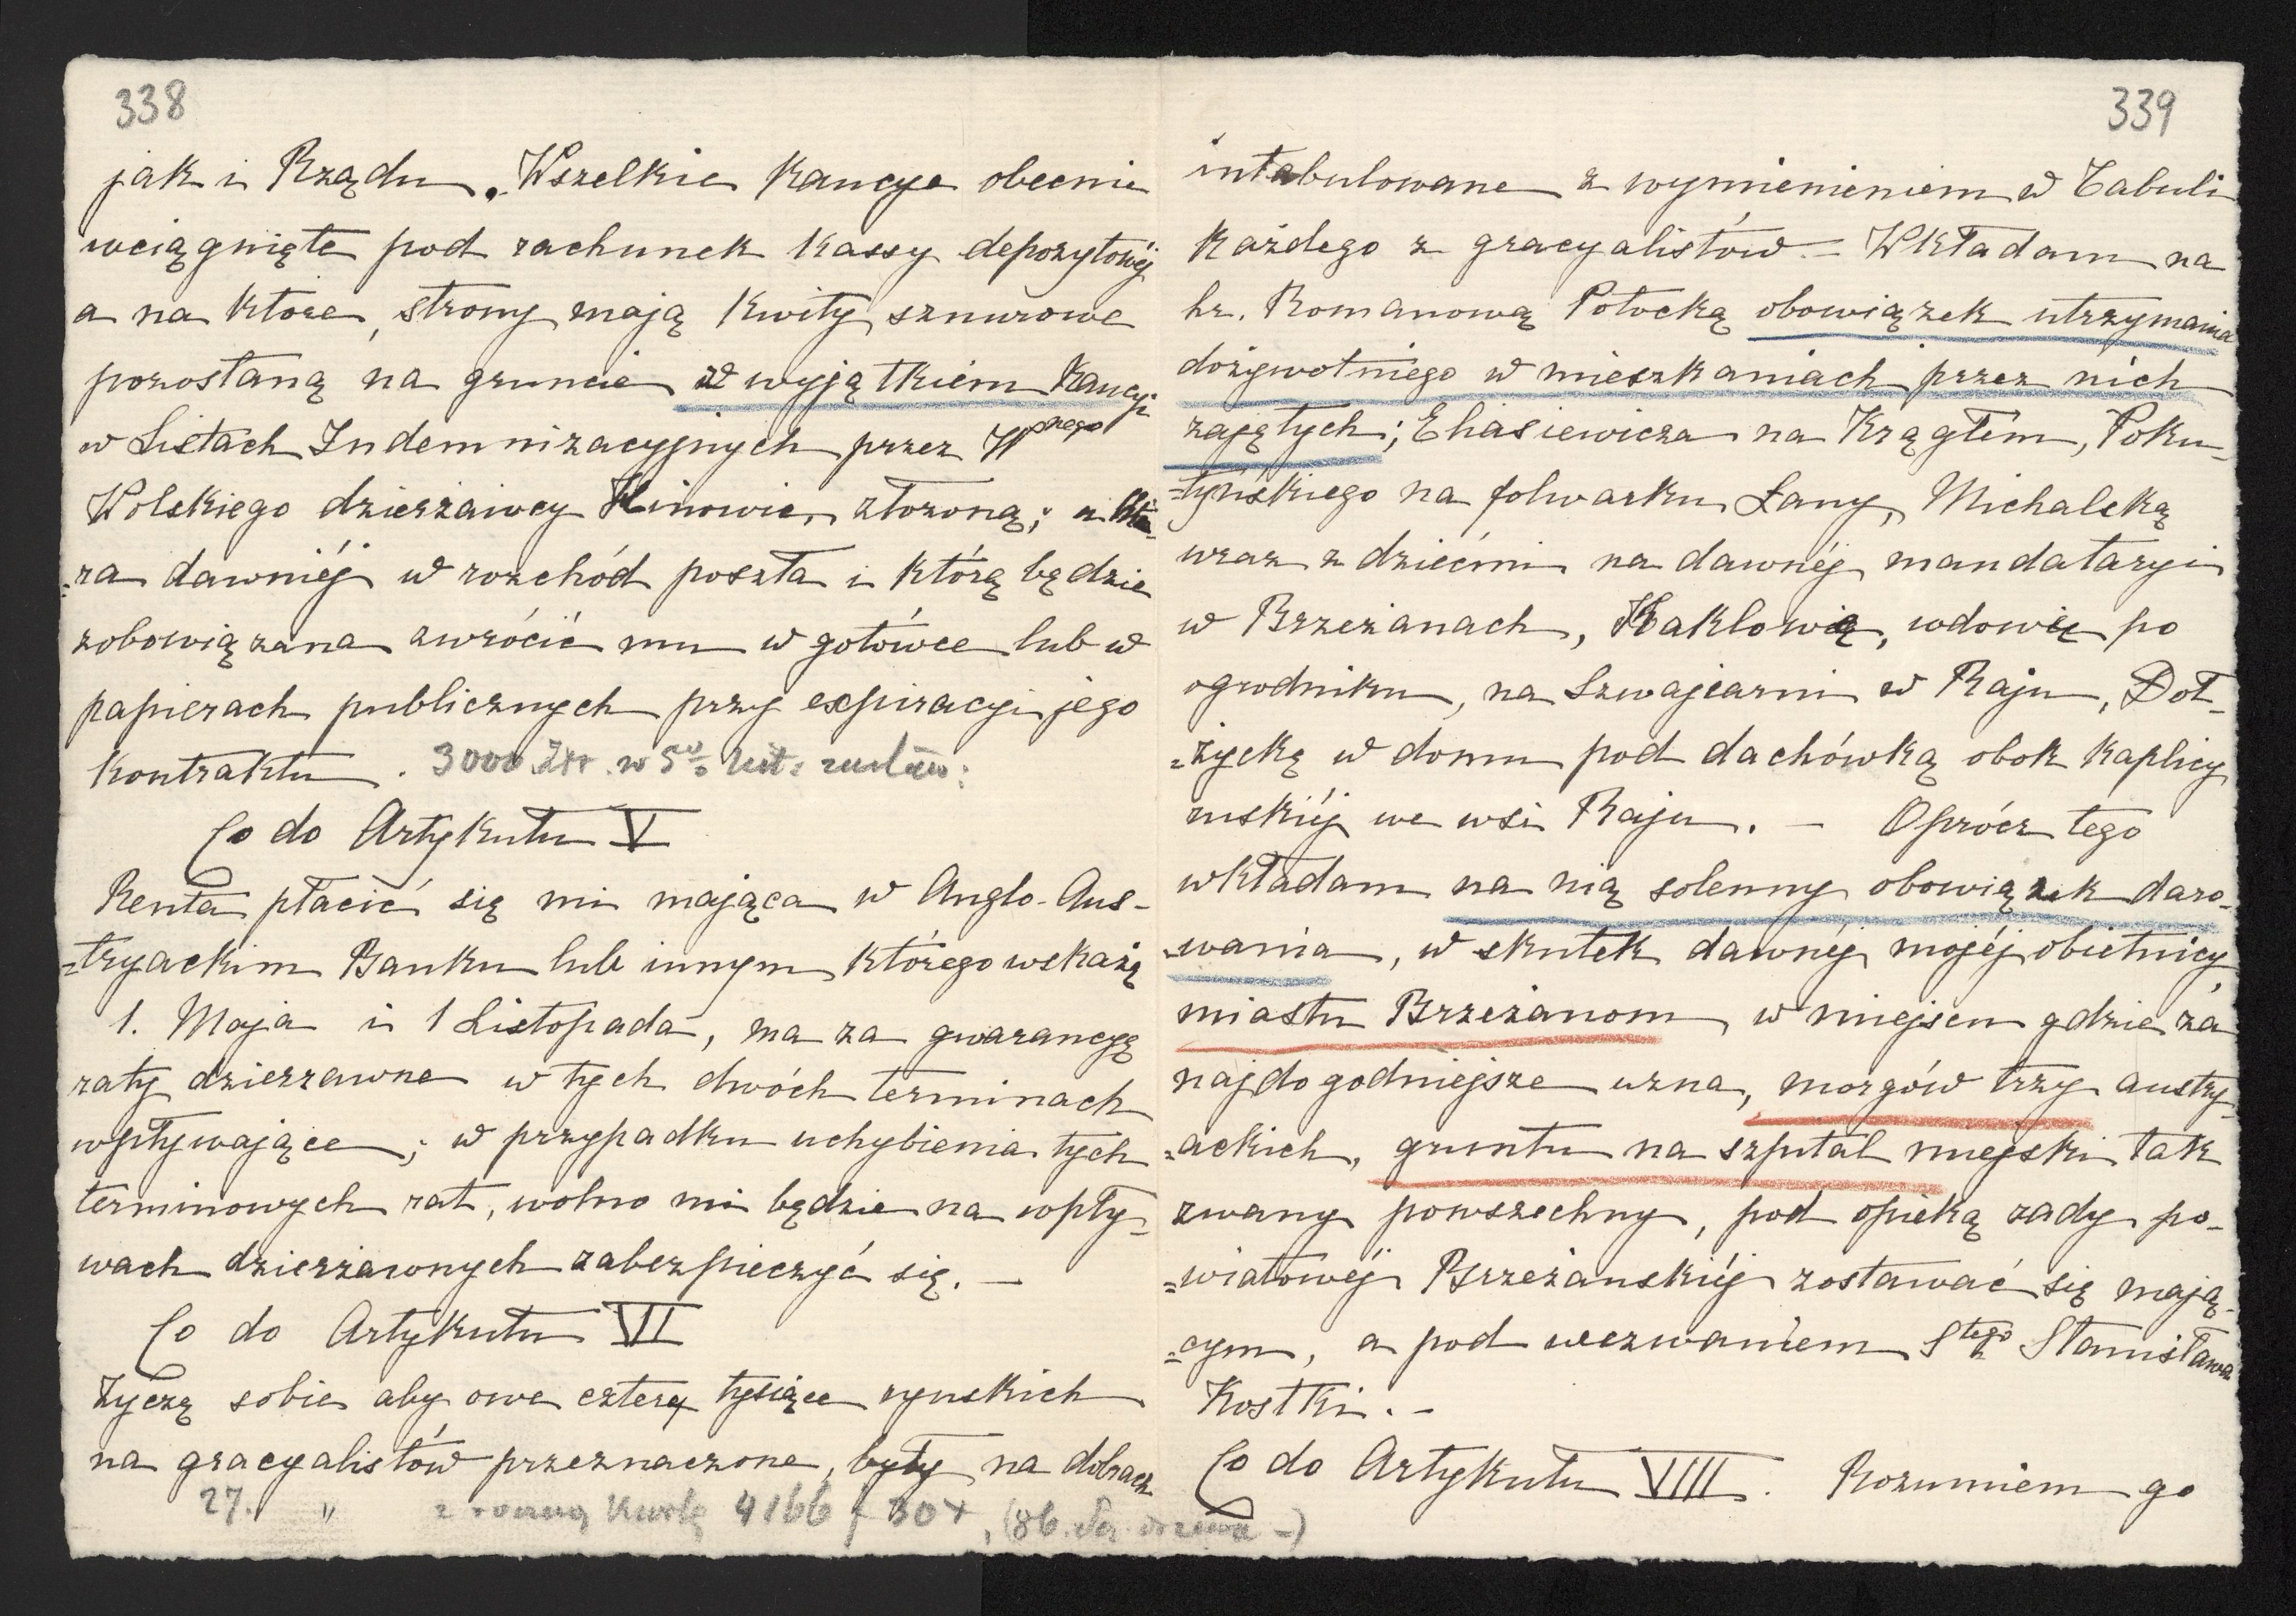 338
jak i Rządu. Wszelkie Kaucye obecnie
wciągnięte pod rachunek Kassy depozytowéj
a na które, strony mają Kwity sznurowe
pozostaną na gruncie z wyjątkiem Kaucji
w Listach Indemnizacyjnych przez Wo
Wolskiego dzierżawcy Hinowic, złożoną; a któ-
=ra dawniéj w rozchód poszła i którą będzie
zobowiązana zwrócić mu w gotówce lub w
papierach publicznych przy expiracyi jego
Kontraktu. 3000 Złr. w 5% list:
Co do Artykułu V
Renta płacić się mi mająca w Anglo-Aus-
=tryackim Banku lub innym którego wskażę
1. Maja i 1 Listopada, ma za gwarancyę
raty dzierżawne w tych dwóch terminach
wpływające; w przypadku uchybienia tych
terminowych rat, wolno mi będzie na wpły=
wach dzierżawnych zabezpieczyć się. —
Co do Artykułu VII
Życzę sobie aby owe cztery tysiące ryńskich
na gracyalistów przeznaczone, były na dobrach
27. " z roczną Kwotę 4166 f 30
339
intabulowane z wymienieniem w Tabuli
Każdego z gracyalistów. — Wkładam na
hr. Romanową Potocką obowiązek utrzymania
dożywotniego w mieszkaniach przez nich
zajętych; Eliasiewicza na Krągłém, Poku-
=tyńskiego na folwarku Łany, Michalską
wraz z dziećmi na dawnéj mandataryi
w Brzeżanach, Haklową, wdowię po
ogrodniku, na Szwajcarni w Raju, Doł-
=życkę w domu pod dachówką obok Kaplicy
ruskiéj we wsi Raju. — Oprócz tego
wkładam na nią solenny obowiązek daro-
-wania, w skutek dawnéj mojéj obietnicy
miastu Brzeżanom, w miejscu gdzie za
najdogodniejsze uzna, morgów trzy austry-
=ackich, gruntu na szpital miejski tak
zwany powszechny, pod opieką rady po-
=wiatowéj Brzeżanskiéj zostawać się mają-
=cym, a pod wezwaniem Stego Stanisława
Kostki. -
Co do Artykułu VIII. Rozumiem go